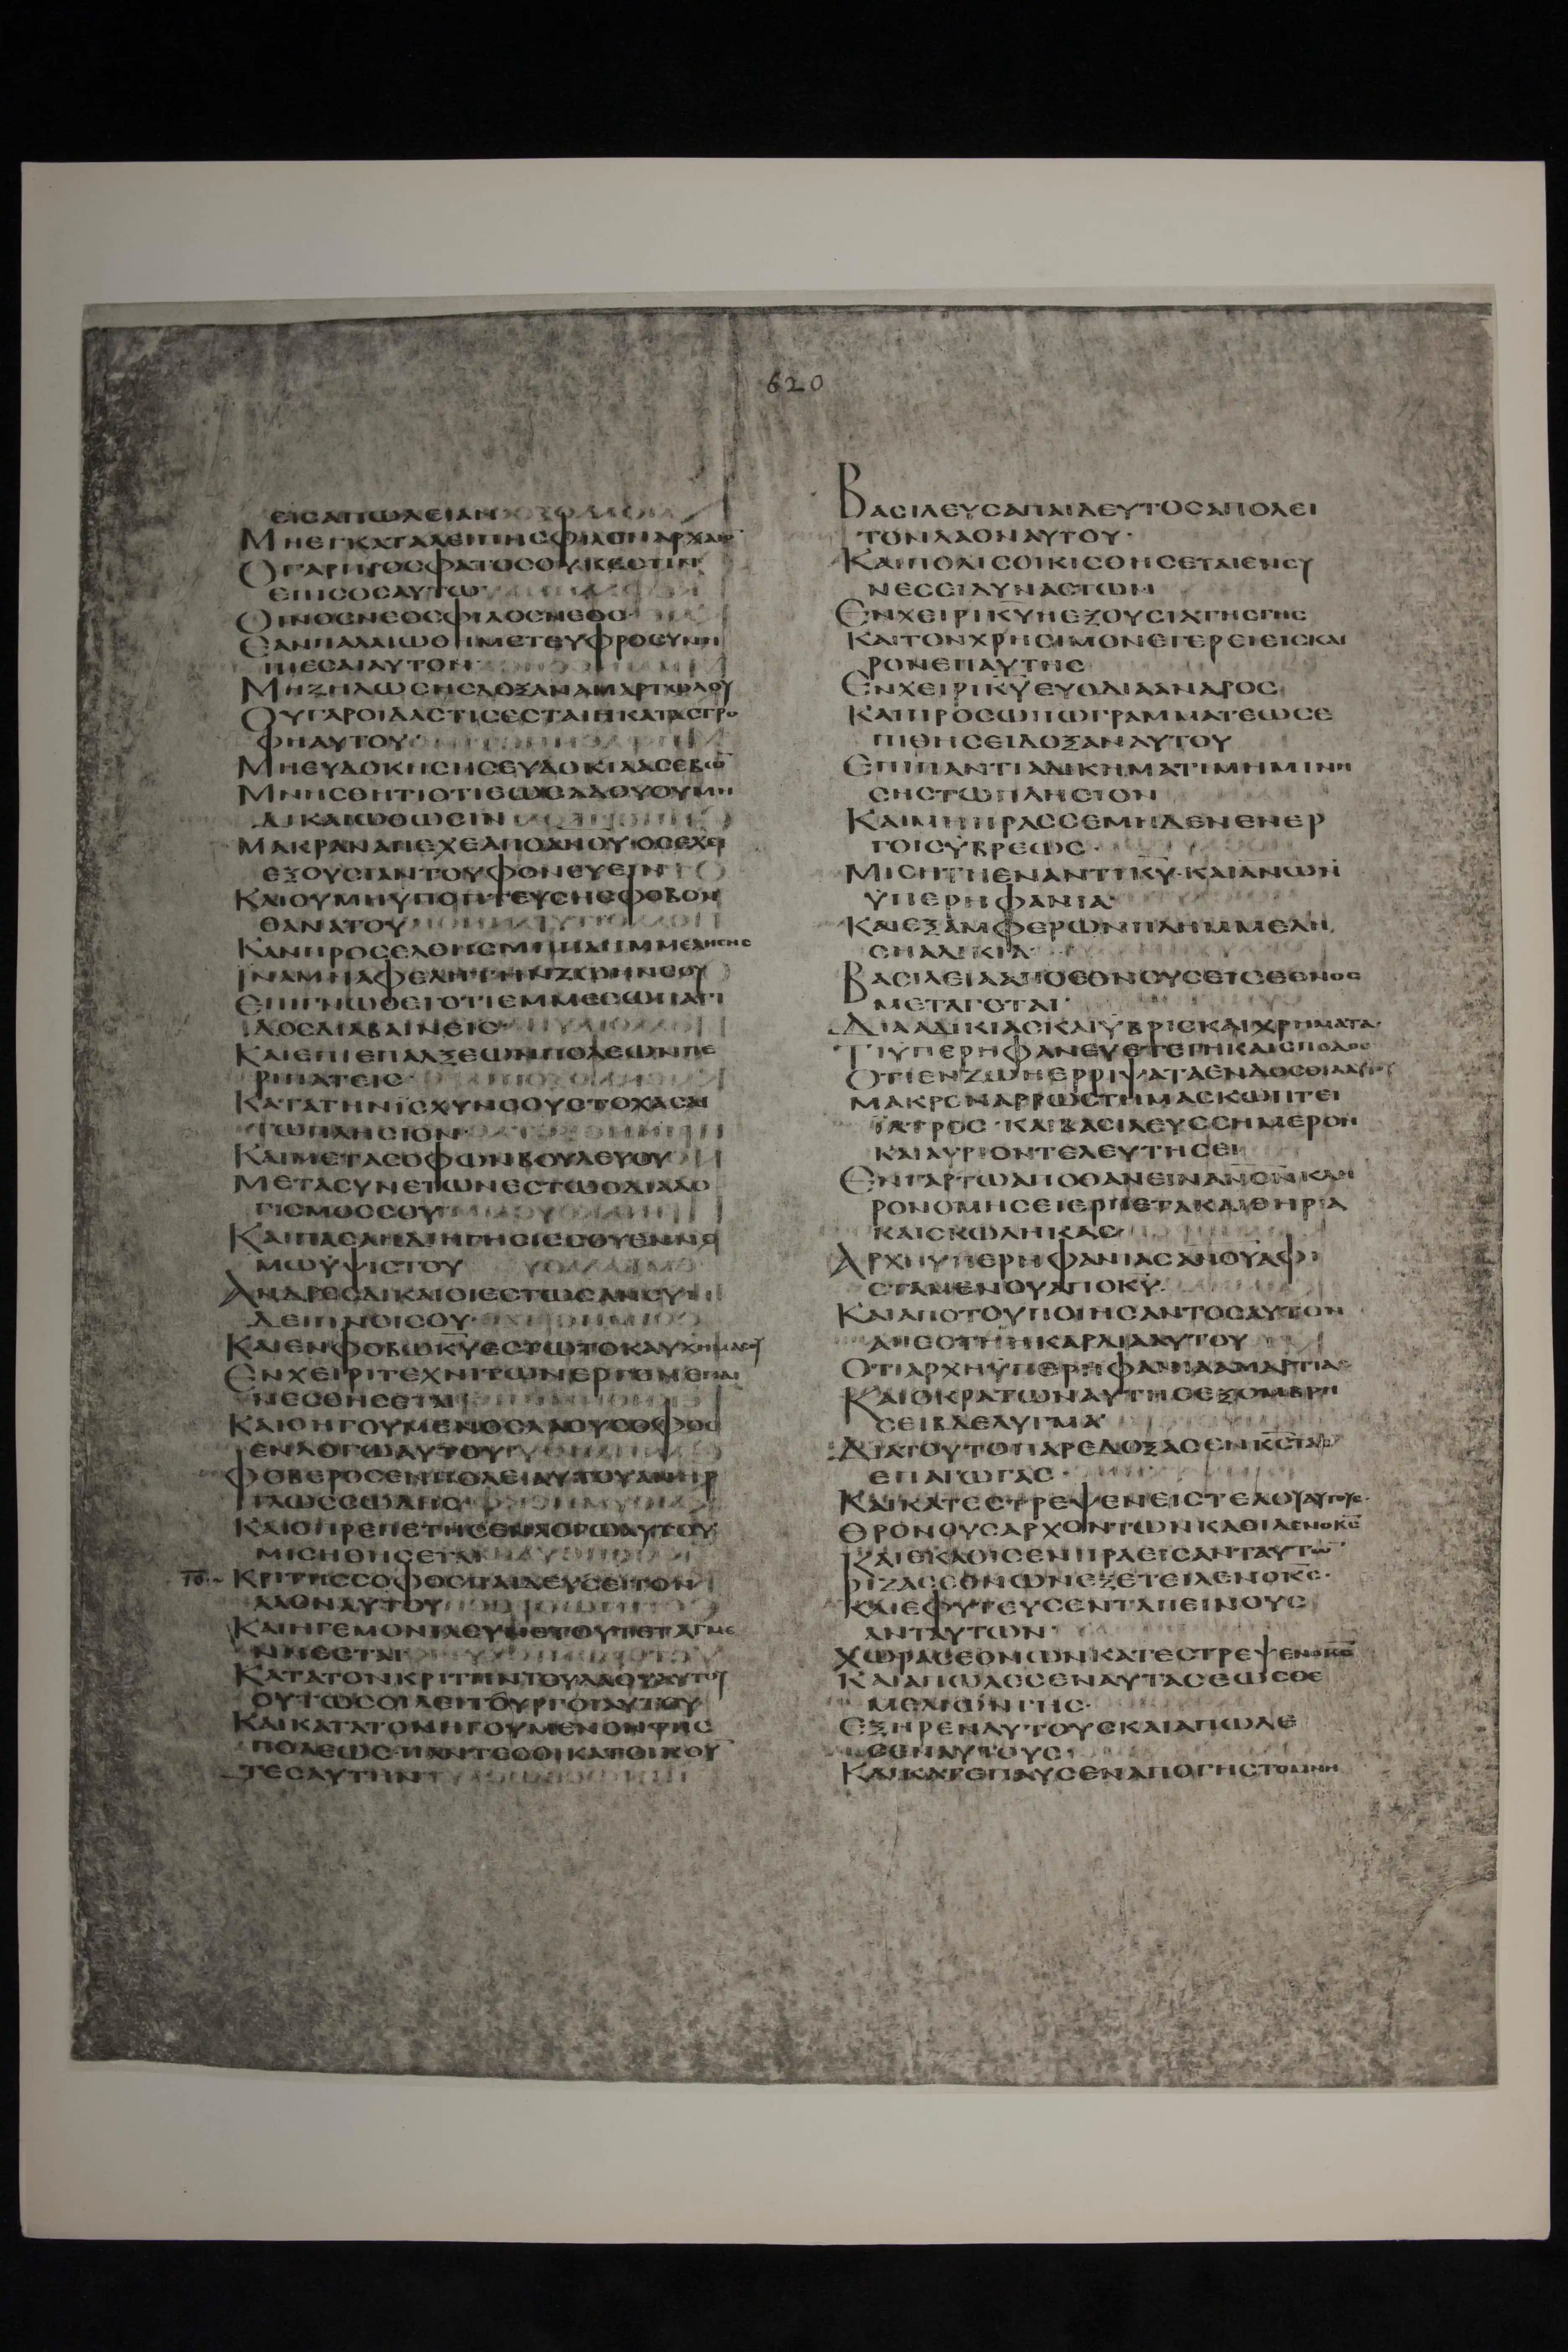 620
ΕΙΣΑΠΩΛΕΙΑΝ
ΜΗΕΓΚΑΤΑΛΕΙΠΗΣΦΙΛΟΝΑΡΧΑΙΟ
ΟΓΑΡΠΡΟΣΦΑΤΟΣΟΥΚΕΣΤΙΝ
ΕΠΙΣΟΣΑΥΤΩ
ΟΙΝΟΣΝΕΟΣΦΙΛΟΣΝΕΟΣ
ΕΑΝΠΑΛΑΙΩΘΗΜΕΤΕΥΦΡΟΣΥΝΗ
ΠΙΕΣΑΙΑΥΤΟΝ
ΜΗΖΗΛΩΣΗΣΔΟΞΑΝΑΜΑΡΤΩΛΟΥ
ΟΥΓΑΡΟΙΔΑΣΤΙΣΕΣΤΑΙΗΚΑΤΑΣΤΡΟ
ΦΗΑΥΤΟΥ
ΜΗΕΥΔΟΚΗΣΗΣΕΥΔΟΚΙΑΑΣΕΒΩ̅
ΜΝΗΣΘΗΤΙΟΤΙΕΩΣΑΔΟΥΟΥΜΗ
ΔΙΚΑΙΩΘΩΣΙΝ
ΜΑΚΡΑΝΑΠΕΧΕΑΠΟΑΝΟΥΟΣΕΧΕΙ
ΕΞΟΥΣΙΑΝΤΟΥΦΟΝΕΥΕΙΝ
ΚΑΙΟΥΜΗΫΠΟΠΤΕΥΣΗΣΦΟΒΟΝ
ΘΑΝΑΤΟΥ
ΚΑΝΠΡΟΣΕΛΘΗΣΜΗΠΛΗΜΜΕΛΗΣΗΣ
ΙΝΑΜΗΑΦΕΛΗΤΗΝΖΩΗΝΣΟΥ
ΕΠΙΓΝΩΘΕΙΟΤΙΕΜΜΕΣΩΠΑΓΙ
ΔΟΣΔΙΑΒΑΙΝΕΙΣ
ΚΑΙΕΠΙΕΠΑΛΞΕΩΝΠΟΛΕΩΝΠΕ
ΡΙΠΑΤΕΙΣ
ΚΑΤΑΤΗΝΪΣΧΥΝΣΟΥΣΤΟΧΑΣΑΙ
ΤΩΠΛΗΣΙΟΝ
ΚΑΙΜΕΤΑΣΟΦΩΝΒΟΥΛΕΥΟΥ
ΜΕΤΑΣΥΝΕΤΩΝΕΣΤΩΟΔΙΑΛΟ
ΓΙΣΜΟΣΣΟΥ
ΚΑΙΠΑΣΑΗΔΙΗΓΗΣΙΣΣΟΥΕΝΝΟ
ΜΩΫΨΙΣΤΟΥ
ΑΝΔΡΕΣΔΙΚΑΙΟΙΕΣΤΩΣΑΝΣΥΝ
ΔΕΙΠΝΟΙΣΟΥ
ΚΑΙΕΝΦΟΒΩΚΥ̅ΕΣΤΩΤΟΚΑΥΧΗΜΑΣΟΥ
ΕΝΧΕΙΡΙΤΕΧΝΙΤΩΝΕΡΓΟΝΕΠΑΙ
ΝΕΣΘΗΣΕΤΑΙ
ΚΑΙΟΗΓΟΥΜΕΝΟΣΛΑΟΥΣΟΦΟΣ
ΕΝΛΟΓΩΑΥΤΟΥ
ΦΟΒΕΡΟΣΕΝΠΟΛΕΙΑΥΤΟΥΑΝΗΡ
ΓΛΩΣΣΩΔΗΣ
ΚΑΙΟΠΡΟΠΕΤΗΣΕΝΛΟΓΩΑΥΤΟΥ
ΜΙΣΗΘΗΣΕΤΑΙ
ΚΡΙΤΗΣΣΟΦΟΣΠΑΙΔΕΥΣΕΙΤΟΝ
ΛΑΟΝΑΥΤΟΥ
ΚΑΙΗΓΕΜΟΝΙΑΣΥΝΕΤΟΥΤΕΤΑΓΜΕ
ΝΗΕΣΤΑΙ
ΚΑΤΑΤΟΝΚΡΙΤΗΝΤΟΥΛΑΟΥΑΥΤΟΥ
ΟΥΤΩΣΟΙΛΕΙΤΟΥΡΓΟΙΑΥΤΟΥ
ΚΑΙΚΑΤΑΤΟΝΗΓΟΥΜΕΝΟΝΤΗΣ
ΠΟΛΕΩΣΠΑΝΤΕΣΟΙΚΑΤΟΙΚΟΥ
ΤΕΣΑΥΤΗΝ
ΒΑΣΙΛΕΥΣΑΠΑΙΔΕΥΤΟΣΑΠΟΛΕΙ
ΤΟΝΛΑΟΝΑΥΤΟΥ·
ΚΑΙΠΟΛΙΣΟΙΚΙΣΘΗΣΕΤΑΙΕΝΣΥ
ΝΕΣΕΙΔΥΝΑΣΤΩΝ
ΕΝΧΕΙΡΙΚΥ̅ΗΕΞΟΥΣΙΑΤΗΣΓΗΣ
ΚΑΙΤΟΝΧΡΗΣΙΜΟΝΕΓΕΡΕΙΕΙΣΚΑΙ
ΡΟΝΕΠΑΥΤΗΣ
ΕΝΧΕΙΡΙΚΥ̅ΕΥΟΔΙΑΑΝΔΡΟΣ
ΚΑΙΠΡΟΣΩΠΩΓΡΑΜΜΑΤΕΩΣΕ
ΠΙΘΗΣΕΙΔΟΞΑΝΑΥΤΟΥ
ΕΠΙΠΑΝΤΙΑΔΙΚΗΜΑΤΙΜΗΜΙΝΗ
ΣΗΣΤΩΠΛΗΣΙΟΝ
ΚΑΙΜΗΠΡΑΣΣΕΜΗΔΕΝΕΝΕΡ
ΓΟΙΣΫΒΡΕΩΣ·
ΜΙΣΗΤΗΕΝΑΝΤΙΚΥ̅·ΚΑΙΑΝΩΝ
ΫΠΕΡΗΦΑΝΙΑ
ΚΑΙΕΞΑΜΦΕΡΩΝΠΛΗΜΜΕΛΗ
ΣΗΑΔΙΚΙΑ·
ΒΑΣΙΛΕΙΑΑΠΟΕΘΝΟΥΣΕΙΣΕΘΝΟΣ
ΜΕΤΑΓΕΤΑΙ·
ΔΙΑΑΔΙΚΙΑΣΚΑΙΫΒΡΙΣΚΑΙΧΡΗΜΑΤΑ·
ΤΙΫΠΕΡΗΦΑΝΕΥΕΤΕΓΗΚΑΙΣΠΟΔΟΣ
ΟΤΙΕΝΖΩΗΕΡΡΙΨΑΤΑΕΝΔΟΣΘΙΑΑΥΤΟΥ
ΜΑΚΡΟΝΑΡΡΩΣΤΗΜΑΣΚΩΠΤΕΙ
ΪΑΤΡΟΣ·ΚΑΙΒΑΣΙΛΕΥΣΣΗΜΕΡΟΝ
ΚΑΙΑΥΡΙΟΝΤΕΛΕΥΤΗΣΕΙ
ΕΝΓΑΡΤΩΑΠΟΘΑΝΕΙΝΑΝΟΝ̅ΚΛΗ
ΡΟΝΟΜΗΣΕΙΕΡΠΕΤΑΚΑΙΘΗΡΙΑ
ΚΑΙΣΚΩΛΗΚΑΣ
ΑΡΧΗΫΠΕΡΗΦΑΝΙΑΣΑΝΟΥΑΦΙ
ΣΤΑΜΕΝΟΥΑΠΟΚΥ̅
ΚΑΙΑΠΟΤΟΥΠΟΙΗΣΑΝΤΟΣΑΥΤΟΝ
ΑΠΕΣΤΗΗΚΑΡΔΙΑΑΥΤΟΥ
ΟΤΙΑΡΧΗΫΠΕΡΗΦΑΝΙΑΑΜΑΡΤΙΑ
ΚΑΙΟΚΡΑΤΩΝΑΥΤΗΣΕΞΟΜΒΡΗ
ΣΕΙΒΔΕΛΥΓΜΑ
ΔΙΑΤΟΥΤΟΠΑΡΕΔΟΞΑΣΕΝΚΣ̅ΤΑΣ
ΕΠΑΓΩΓΑΣ·
ΚΑΙΚΑΤΕΣΤΡΕΨΕΝΕΙΣΤΕΛΟΣΑΥΤΟΥΣ·
ΘΡΟΝΟΥΣΑΡΧΟΝΤΩΝΚΑΘΙΛΕΝΟΚΣ̅
ΚΑΙΕΚΑΘΙΣΕΝΠΡΑΕΙΣΑΝΤΑΥΤΩ̅
ΡΙΖΑΣΕΘΝΩΝΕΞΕΤΕΙΛΕΝΟΚΣ̅·
ΚΑΙΕΦΥΤΕΥΣΕΝΤΑΠΕΙΝΟΥΣ
ΑΝΤΑΥΤΩΝ
ΧΩΡΑΣΕΘΝΩΝΚΑΤΕΣΤΡΕΨΕΝΟΚΣ̅
ΚΑΙΑΠΩΛΕΣΕΝΑΥΤΑΣΕΩΣΘΕ
ΜΕΛΙΩΝΓΗΣ·
ΕΞΗΡΕΝΑΥΤΟΥΣΚΑΙΑΠΩΛΕ
ΣΕΝΑΥΤΟΥΣ
ΚΑΙΚΑΤΕΠΑΥΣΕΝΑΠΟΓΗΣΤΟΜΝΗ